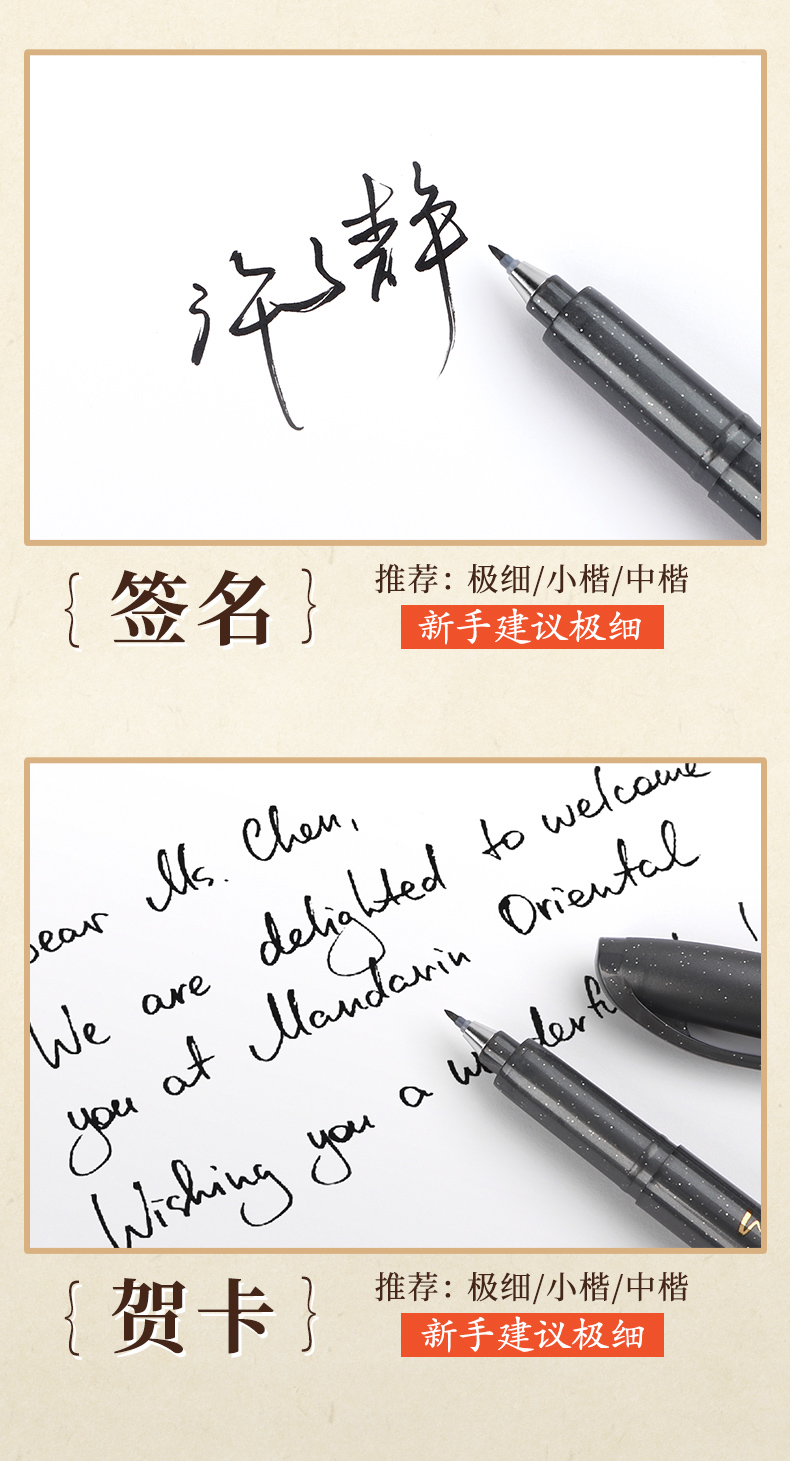 许静
{签名}
推荐：极细/小楷/中楷
新手建议极细
ear Ms. Chen,
We are delighted to welcome
you at Mandarin Oriental
Wishing you a
{贺卡}
推荐：极细/小楷/中楷
新手建议极细